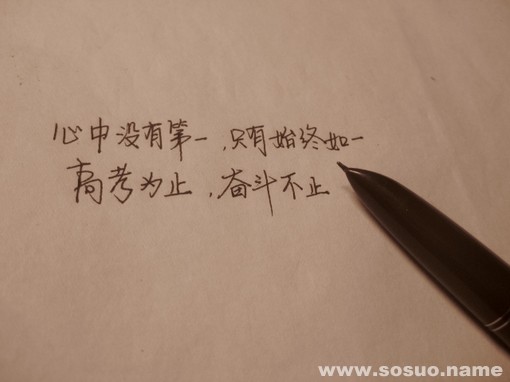 心中没有第一，只有始终如一
高考为止，奋斗不止
www.sosuo.name